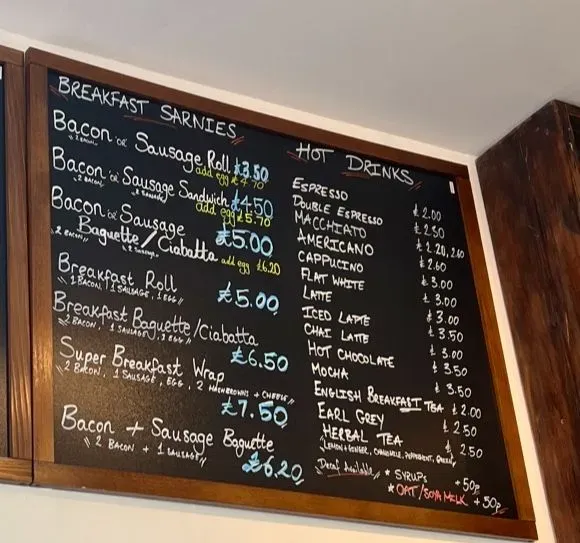 BREAKFAST SARNIES
Bacon or Sausage Roll £3.50
2 BACON
add egg £4.70
Bacon or Sausage Sandwich £4.50
2 BACON 2 SAUSAGE
add egg £5.70
Bacon or Sausage £5.00
Baguette/Ciabatta add egg £6.20
2 BACON 2 SAUSAGE
Breakfast Roll £5.00
1 BACON, 1 SAUSAGE, 1 EGG
Breakfast Baguette/Ciabatta
2 BACON, 1 SAUSAGE, 1 EGG
£6.50
Super Breakfast Wrap
2 BACON, 1 SAUSAGE, EGG, 2 HASHBROWNS + CHEESE
£7.50
Bacon + Sausage Baguette
2 BACON + 1 SAUSAGE
£6.20
HOT DRINKS
ESPRESSO £2.00
DOUBLE ESPRESSO £2.50
MACCHIATO £2.20, 2.60
AMERICANO £2.60
CAPPUCINO £3.00
FLAT WHITE £3.00
LATTE £3.00
ICED LATTE £3.50
CHAI LATTE £3.00
HOT CHOCOLATE £3.50
MOCHA £3.50
ENGLISH BREAKFAST TEA £2.00
EARL GREY £2.50
HERBAL TEA £2.50
LEMON + GINGER, CHAMOMILE, PEPPERMINT, GREEN
Decaf Available * SYRUPS +50p
* OAT/SOYA MILK +50p